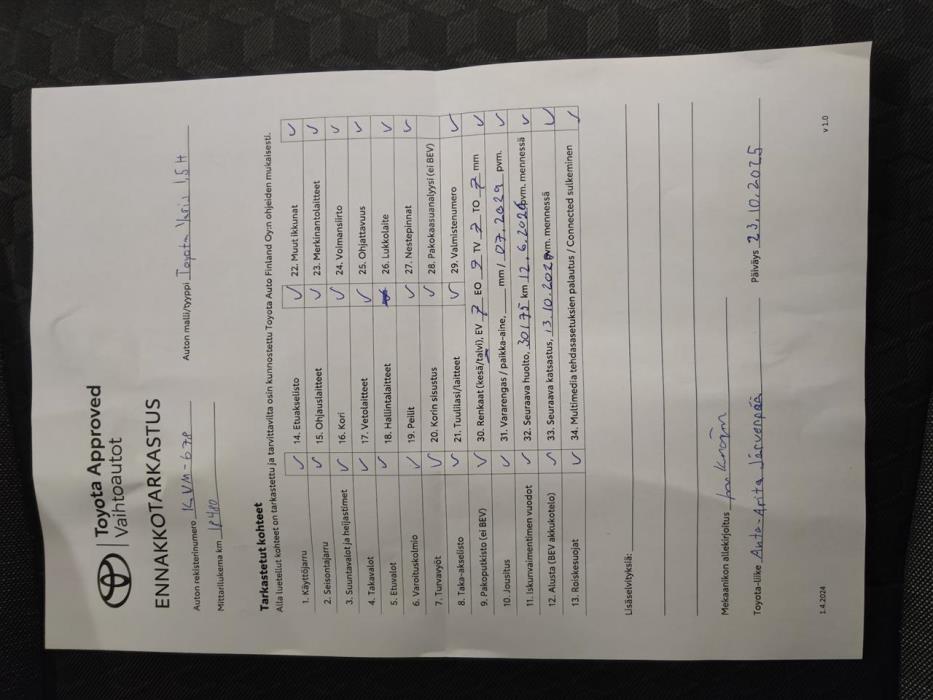 Toyota Approved
Vaihtoautot
ENNAKKOTARKASTUS
Auton rekisterinumero KVM-678 Auton malli/tyyppi Toyota Yaris 1,5 H
Mittarilukema km 18480
Tarkastetut kohteet
Alla luetellut kohteet on tarkastettu ja tarvittavilta osin kunnostettu Toyota Auto Finland Oy:n ohjeiden mukaisesti.
1. Käyttöjarru ✓ 14. Etuakselisto ✓ 22. Muut ikkunat ✓
2. Seisontajarru ✓ 15. Ohjauslaitteet ✓ 23. Merkinantolaitteet ✓
3. Suuntavalot ja heijastimet ✓ 16. Kori ✓ 24. Voimansiirto ✓
4. Takavalot ✓ 17. Vetolaitteet ✓ 25. Ohjattavuus ✓
5. Etuvalot ✓ 18. Hallintalaitteet 26. Lukkolaite ✓
6. Varoituskolmio ✓ 19. Peilit ✓ 27. Nestepinnat ✓
7. Turvavyöt ✓ 20. Korin sisustus ✓ 28. Pakokaasuanalyysi (ei BEV)
8. Taka-akselisto ✓ 21. Tuulilasi/laitteet ✓ 29. Valmistenumero ✓
9. Pakoputkisto (ei BEV) ✓ 30. Renkaat (kesä/talvi), EV 7 EO 7 TV 7 TO 7 mm ✓
10. Jousitus ✓ 31. Vararengas / paikka-aine, ___ mm / 07.2029 pvm. ✓
11. Iskunvaimentimen vuodot ✓ 32. Seuraava huolto, 30175 km 12.6.2026 pvm. mennessä ✓
12. Alusta (BEV akkukotelo) ✓ 33. Seuraava katsastus, 13.10.2027 pvm. mennessä ✓
13. Roiskesuojat ✓ 34. Multimedia tehdasasetuksien palautus / Connected sulkeminen ✓
Lisäselvityksiä:
Mekaanikon allekirjoitus
Toyota-liike Auto-Arita Järvenpää Päiväys 23.10.2025
1.4.2024 v 1.0